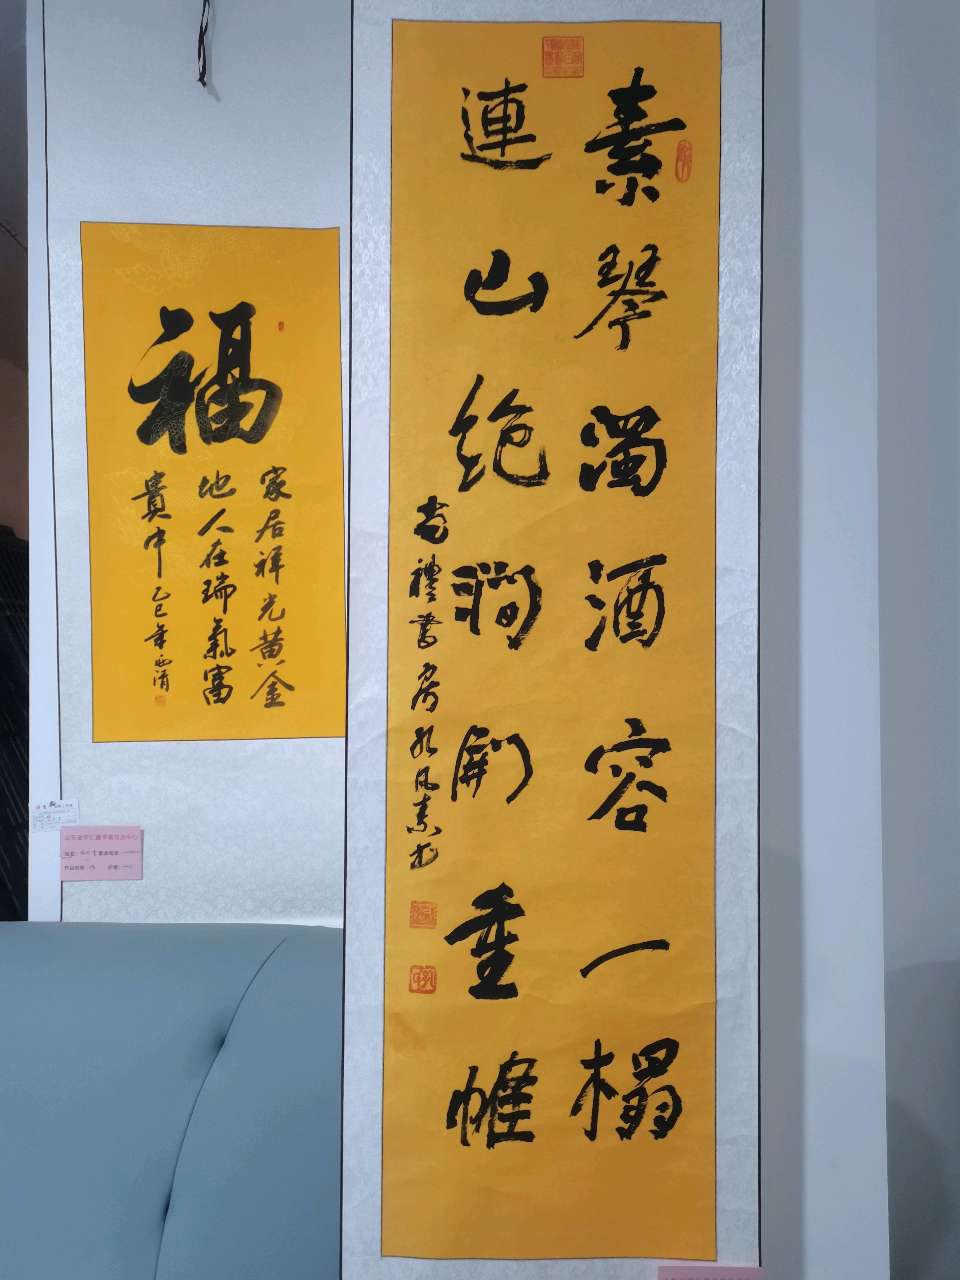 素琴濁酒容一榻
連山絶澗開重帷
禮書房
福
家居祥光黄金
地人在瑞氣富
貴中乙巳年